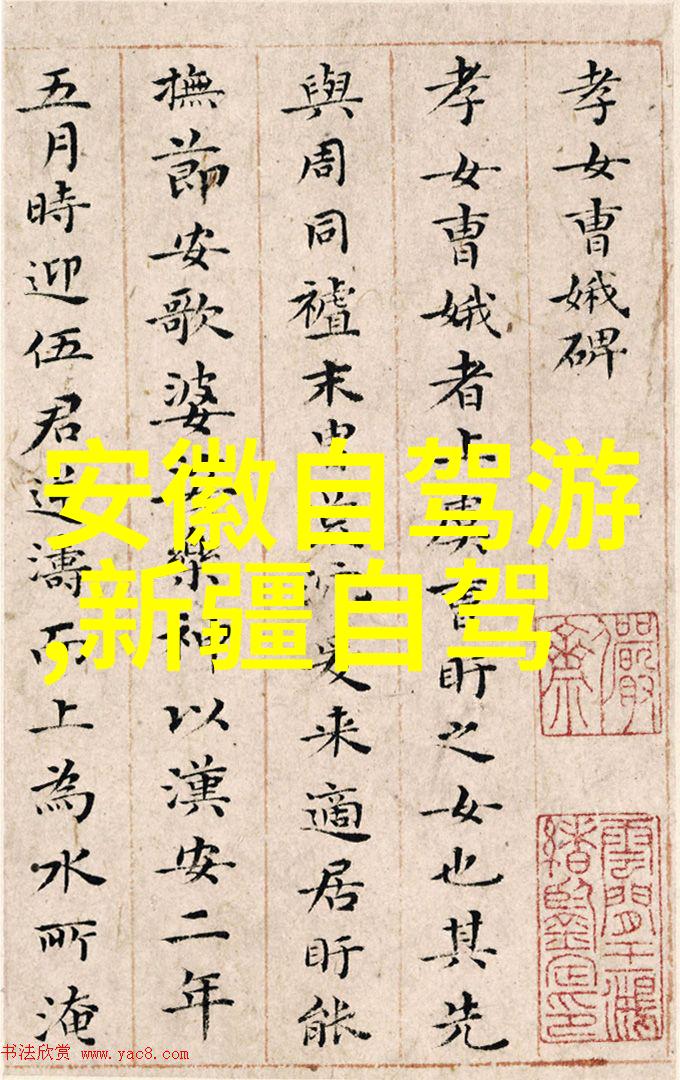 孝女曹娥碑
孝女曹娥者上虞曹盱之女也其先
與周同禇末胄荒沉爰来適居盱能
撫節安歌婆娑樂神以漢安二年
五月時迎伍君逆濤而上為水所淹
安徽自驾游
,新疆自驾
书法欣赏 www.yac8.com